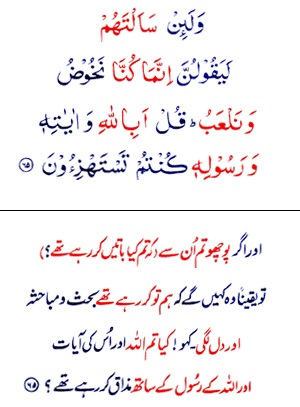 وَلَئِنْ سَاَلْتَهُمْ
لَيَقُوْلُنَّ اِنَّمَا كُنَّا نَخُوْضُ
وَنَلْعَبُ ؕ قُلْ اَبِاللّٰهِ وَاٰيٰتِهٖ
وَرَسُوْلِهٖ كُنْتُمْ تَسْتَهْزِءُوْنَ ﴿۶۵﴾
اور اگر پوچھو تم اُن سے (کہ تم کیا باتیں کر رہے تھے؟)
تو یقیناً وہ کہیں گے کہ ہم تو کر رہے تھے بحث و مباحثہ
اور دل لگی۔ کہو! کیا تم اللہ اور اُس کی آیات
اور اللہ کے رسُول کے ساتھ مذاق کر رہے تھے؟ ﴿۶۵﴾